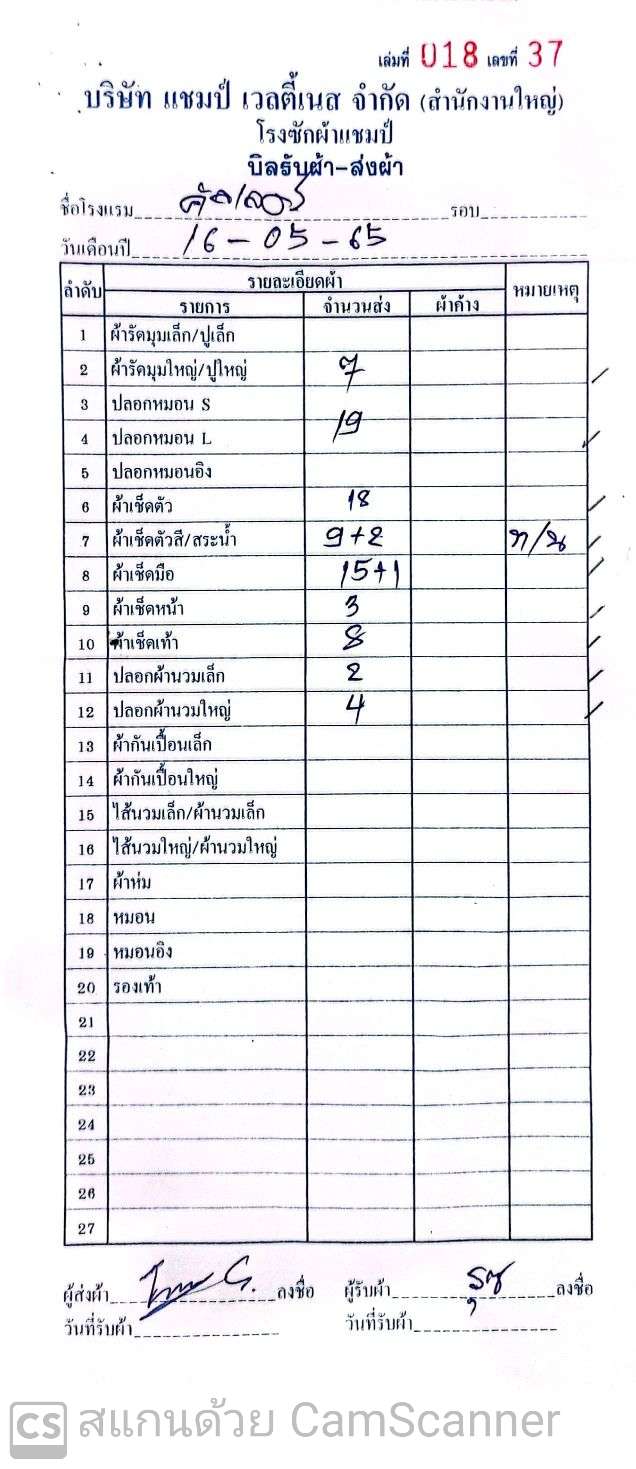 เล่มที่ 018 เลขที่ 37
บริษัท แชมป์ เวลตี้เนส จำกัด (สำนักงานใหญ่)
โรงซักผ้าแชมป์
บิลรับผ้า-ส่งผ้า
ชื่อโรงแรม รอบ
วันเดือนปี 16-05-65
ลำดับ รายละเอียดผ้า หมายเหตุ
รายการ จำนวนส่ง ผ้าค้าง
1 ผ้ารัดมุมเล็ก/ปูเล็ก
2 ผ้ารัดมุมใหญ่/ปูใหญ่ 7
3 ปลอกหมอน S
4 ปลอกหมอน L 19
5 ปลอกหมอนอิง
6 ผ้าเช็ดตัว 18
7 ผ้าเช็ดตัวสี/สระน้ำ 9+2 ท/น
8 ผ้าเช็ดมือ 15+1
9 ผ้าเช็ดหน้า 3
10 ผ้าเช็ดเท้า 8
11 ปลอกผ้านวมเล็ก 2
12 ปลอกผ้านวมใหญ่ 4
13 ผ้ากันเปื้อนเล็ก
14 ผ้ากันเปื้อนใหญ่
15 ไส้นวมเล็ก/ผ้านวมเล็ก
16 ไส้นวมใหญ่/ผ้านวมใหญ่
17 ผ้าห่ม
18 หมอน
19 หมอนอิง
20 รองเท้า
21
22
23
24
25
26
27
ผู้ส่งผ้า ลงชื่อ ผู้รับผ้า ลงชื่อ
วันที่รับผ้า วันที่รับผ้า
CS สแกนด้วย CamScanner